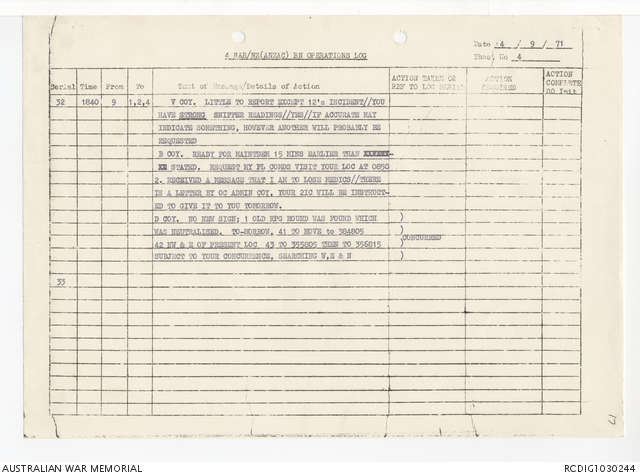 4 RAR/NZ(ANZAC) BN OPERATIONS LOG
Date 4 / 9 / 71
Sheet No 4
Serial Time From To Text of Message/Details of Action ACTION TAKEN OR REF TO LOG SERIAL ACTION ACTION COMPLETE DO Init
32 1840 9 1,2,4 V COY. LITTLE TO REPORT EXCEPT 12's INCIDENT//YOU
HAVE STRONG SNIFFER READINGS//YES//IF ACCURATE MAY
INDICATE SOMETHING, HOWEVER ANOTHER WILL PROBABLY BE
REQUESTED
B COY. READY FOR MAINTDEM 15 MINS EARLIER THAN
STATED. REQUEST MY PL COMDS VISIT YOUR LOC AT 0830
2. RECEIVED A MESSAGE THAT I AM TO LOSE MEDICS//THERE
IS A LETTER BY OC ADMIN COY. YOUR 2IC WILL BE INSTRUCT-
ED TO GIVE IT TO YOU TOMORROW.
D COY. NO NEW SIGN; 1 OLD RPG ROUND WAS FOUND WHICH )
WAS NEUTRALISED. TO-MORROW, 41 TO MOVE to 384805 )
42 NW & E OF PRESENT LOC 43 TO 355805 THEN TO 356815 )CONCURRED
SUBJECT TO YOUR CONCURRENCE, SEARCHING W,E & N )
33
17
AUSTRALIAN WAR MEMORIAL
RCDIG1030244